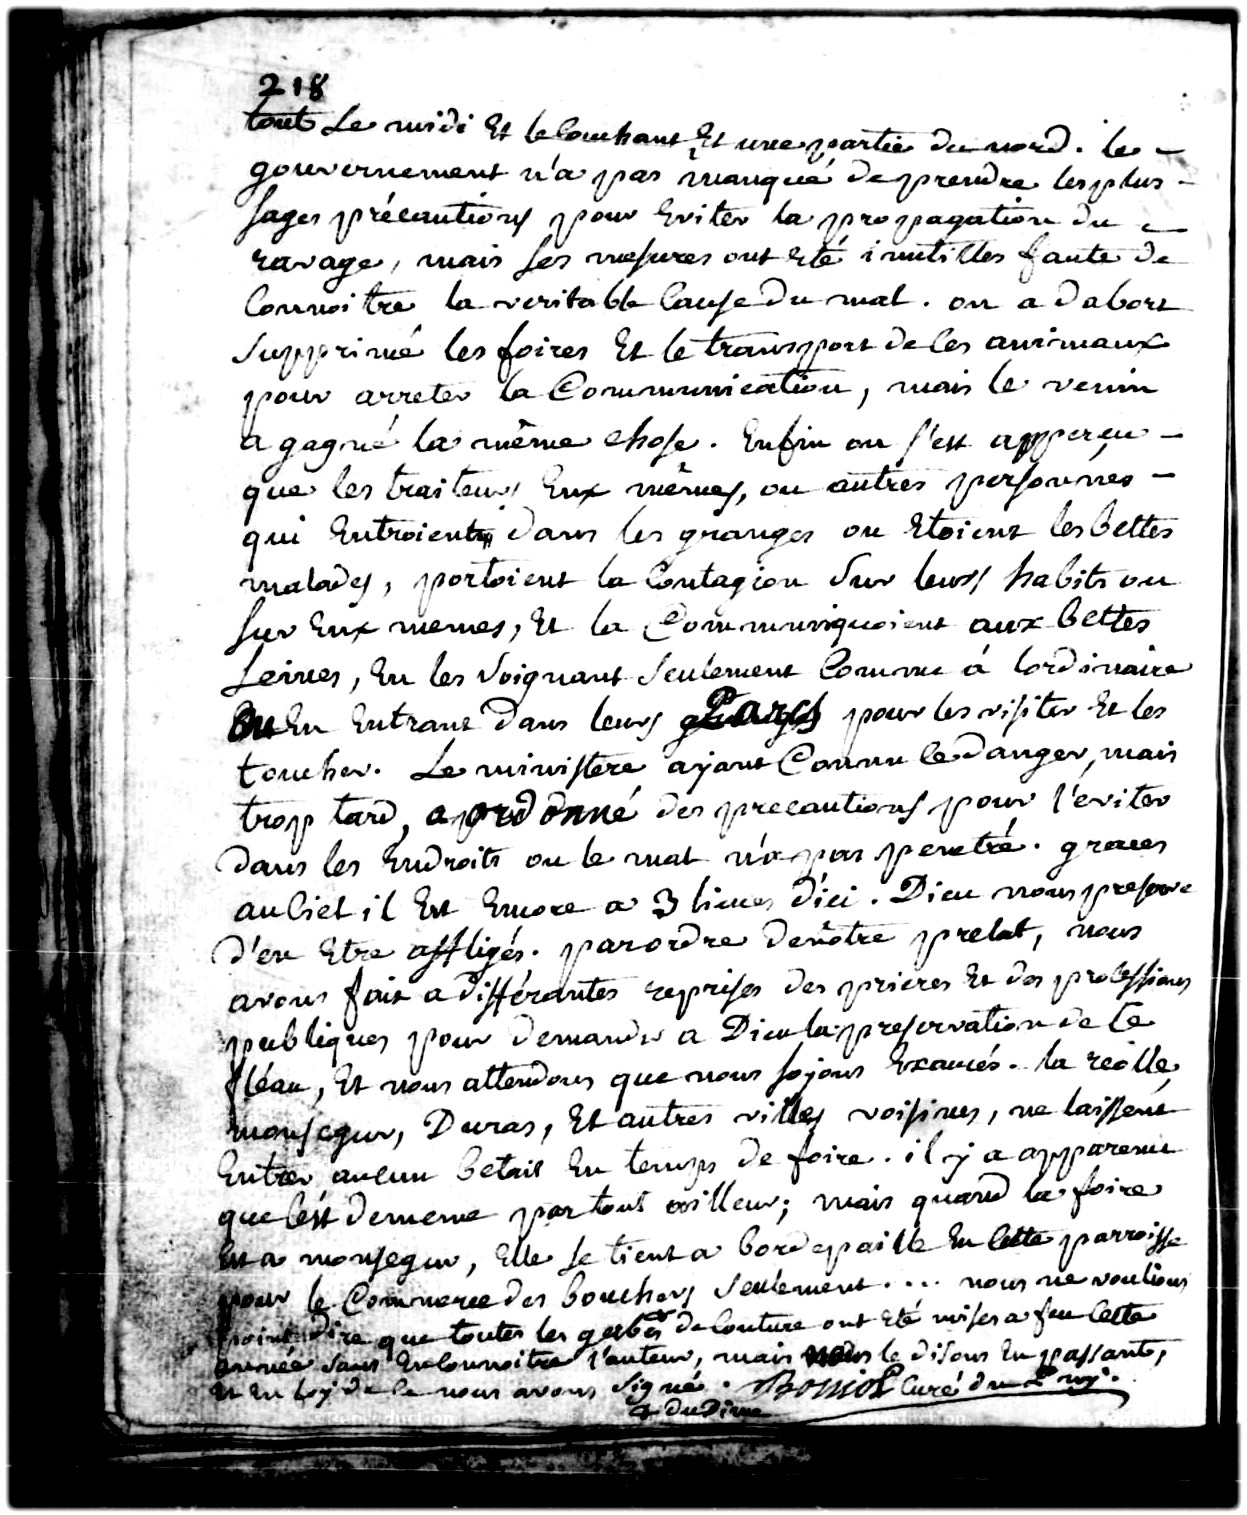 218
tout Le midi Et le Couchant Et une partie du nord. le
gouvernement n'a pas manqué de prendre les plus
sages précautions pour Eviter la propagation du
ravage, mais ses mesures ont eté inutilles faute de
Connoitre la veritable Cause du mal. on a d abort
supprimé les foires Et le transport de Ces animaux
pour arreter la Communication, mais le venin
a gagné la même chose. Enfin on s'est apperçu
que les traiteurs Eux mêmes, ou autres personnes
qui Entroient dans les granges ou Etoient les bettes
malades, portoient la Contagion sur leurs habits ou
sur Eux memes, Et la Communiquoient aux bettes
seines, En les soignant seulement Comme á lordinaire
ou En Entrant dans leurs Parcs pour les visiter Et les
toucher. Le ministere aÿant Connu le danger, mais
trop tard, a ordonné des precautions pour l'eviter
dans les Endroits ou le mal n'a pas penetré. graces
au Ciel il Est Encore a 3 lieues d'ici. Dieu nous preserve
d'en Etre affligés. par ordre de nôtre prelat, nous
avons fait a différantes reprises des prieres Et des processions
publiques pour demander a Dieu la preservation de Ce
fléau, Et nous attendons que nous soÿons Exaucés. la reolle,
monsegur, Duras, Et autres villes voisines, ne laissent
Entrer aucun betail En temps de foire. il ÿ a apparence
que C'est de meme par tout ailleur; mais quand la foire
Est a monsegur, Elle se tient a bordepaille En Cette parroisse
pour le Commerce des bouchers seulement.... nous ne voulions
point dire que toutes les gerbes de Couture ont eté mises a feu Cette
année sans En Connoitre l'auteur, mais nous le disons En passant,
Et En foÿ de Ce nous avons signé. Boniol Curé du Puy.
& du Dime